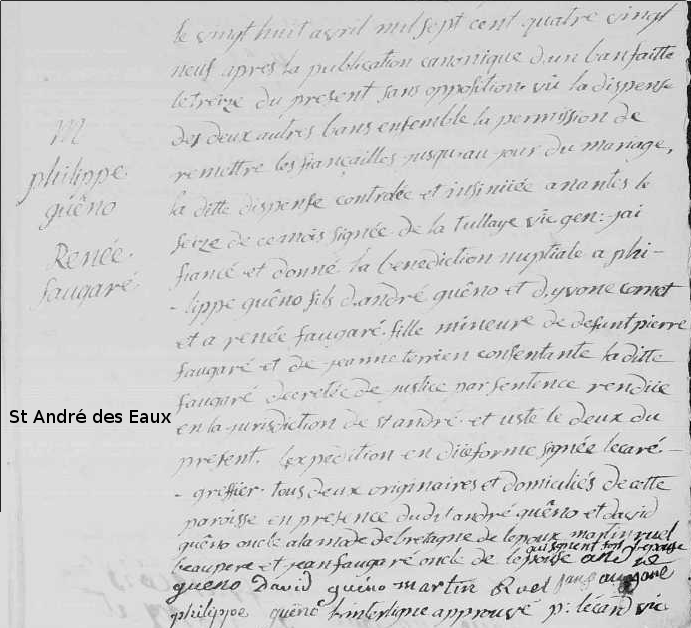 M
philippe
guêno
Renée
faugaré
St André des Eaux
le vingt huit avril mil sept cent quatre vingt
neuf apres la publication canonique d'un ban faitte
le treize du present sans opposition vû la dispense
des deux autres bans ensemble la permission de
remettre les fiançailles jusqu'au jour du mariage,
la ditte dispense controlée et insinüée a nantes le
seize de ce mois signée de la tullaye vic gen: j'ai
fiancé et donné la benediction nuptiale a phi-
-lippe guêno fils d'andré guêno et d'yvone cornet
et a renée faugaré fille mineure de defunt pierre
faugaré et de jeanne terrien consentante la ditte
faugaré decretée de justice par sentence rendüe
en la jurisdiction de st andré et uste le deux du
present. l'expedition en düe forme signée lecaré-
-greffier tous deux originaires et domiciliés de cette
paroisse en presence dudit andré guêno et david
guêno oncle a la mode de bretagne de lepoux martin ruel
beaupere et jean faugaré oncle de lepouse qui signent fors lepouse
gueno David guéno martin Ruel jan faugaré
philippe guêno interligne approuvé p: lecand vic